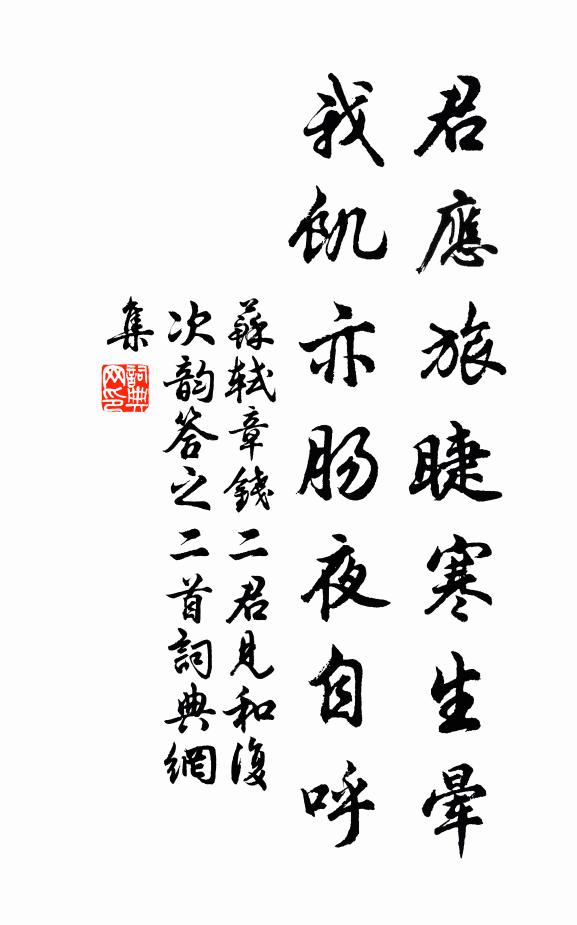 君應旅睫寒生暈
我飢亦腸夜自呼
蘇軾章錢二君見和復
次韵答之二首詞典網
集
詞典网印